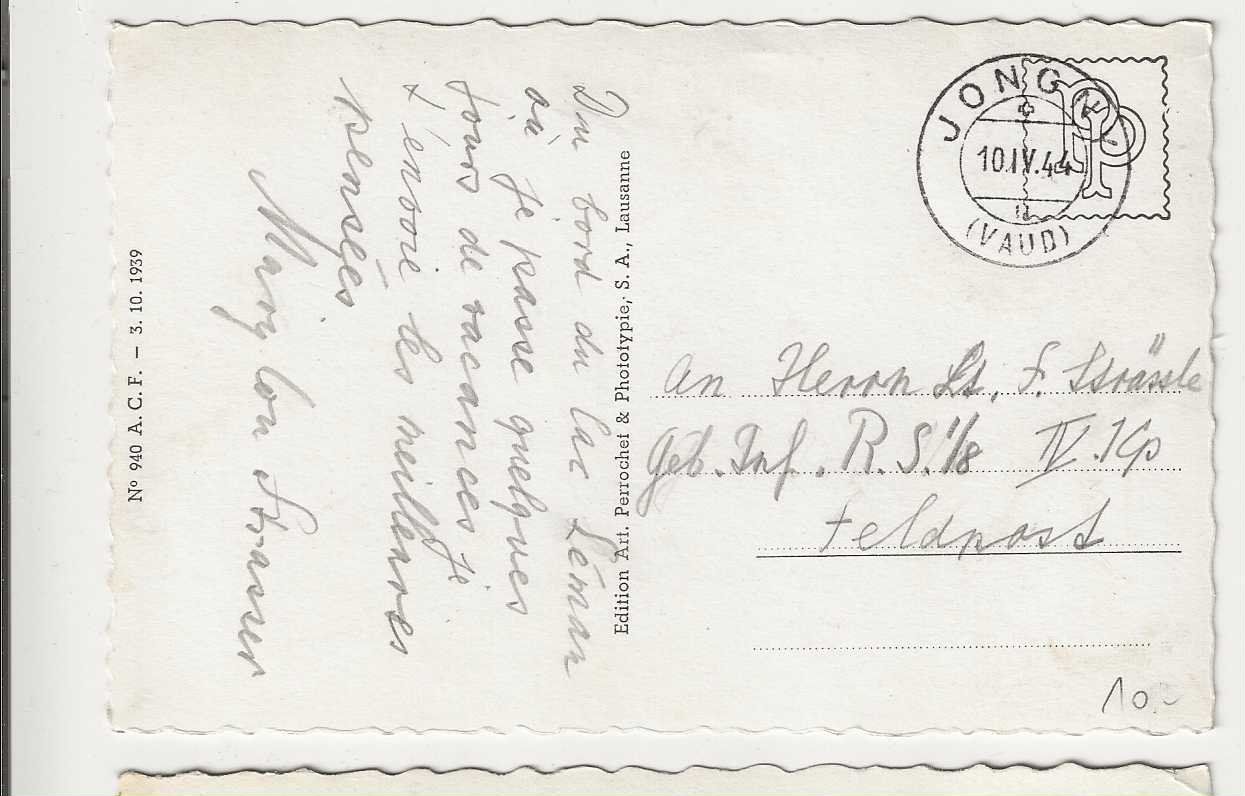 Du bord du lac Léman
où je passe quelques
jours de vacances je
t'envoie les meilleures
pensées
Mary Lou Strasser
N° 940 A. C. F. — 3. 10. 1939
Edition Art. Perrochet & Phototypie, S. A., Lausanne
JONGNY
10.IV.44
(VAUD)
PP
An Herrn Lt. F. Strässle
Geb. Inf. R. S. 1/8 IV. Kp
Feldpost
10.-